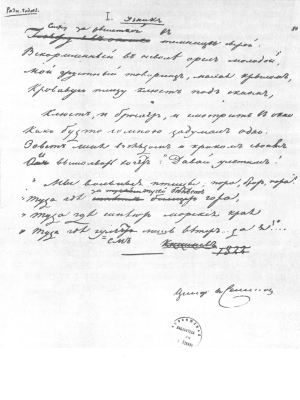 I. Узникъ
Сижу за рѣшеткой въ
темницѣ сырой.
Вскормленный въ неволѣ орелъ молодой,
Мой грустный товарищъ, махая крыломъ,
Кровавую пищу клюетъ подъ окномъ,
Клюетъ, и бросаетъ, и смотритъ въ окно
Какъ будто со мною задумалъ одно.
Зоветъ меня взглядомъ и крикомъ своимъ
вымолвить хочетъ: "Давай улетимъ!
"Мы вольныя птицы; пора, братъ, пора!
"Туда гдѣ гора,
"Туда гдѣ морскіе края
"Туда гдѣ лишь вѣтеръ.. да я!..."
1822